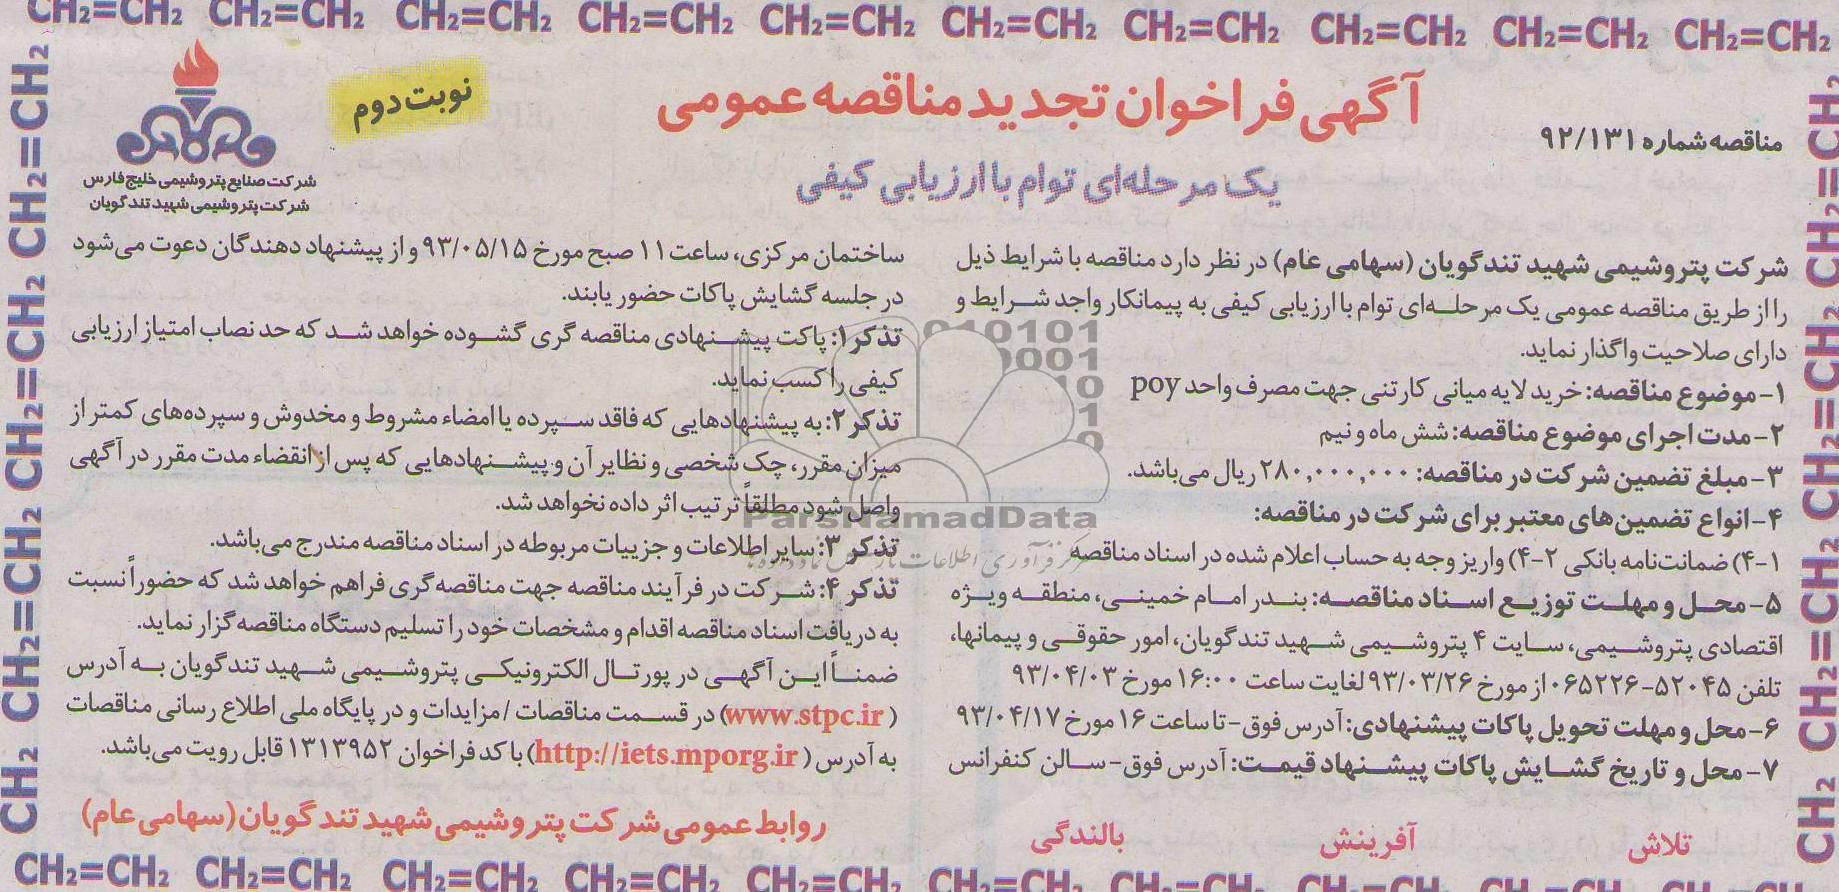 CH₂=CH₂ CH₂=CH₂ CH₂=CH₂ CH₂=CH₂ CH₂=CH₂ CH₂=CH₂ CH₂=CH₂ CH₂=CH₂ CH₂=CH₂ CH₂=CH₂
آگهی فراخوان تجدید مناقصه عمومی
نوبت دوم
مناقصه شماره ۹۲/۱۳۱
یک مرحله‌ای توام با ارزیابی کیفی
شرکت صنایع پتروشیمی خلیج فارس
شرکت پتروشیمی شهید تندگویان
شرکت پتروشیمی شهید تندگویان (سهامی عام) در نظر دارد مناقصه با شرایط ذیل
را از طریق مناقصه عمومی یک مرحلـه‌ای توام با ارزیابی کیفی به پیمانکار واجد شـرایط و
دارای صلاحیت واگذار نماید.
۱- موضوع مناقصه: خرید لایه میانی کارتنی جهت مصرف واحد poy
۲- مدت اجرای موضوع مناقصه: شش ماه و نیم
۳- مبلغ تضمین شرکت در مناقصه: ۲۸۰,۰۰۰,۰۰۰ ریال می‌باشد.
۴- انواع تضمین‌های معتبر برای شرکت در مناقصه:
۴-۱) ضمانت‌نامه بانکی ۴-۲) واریز وجه به حساب اعلام شده در اسناد مناقصه
۵- محـل و مهلـت توزیـع اسـناد مناقصـه: بنـدر امـام خمینـی، منطقـه ویـژه
اقتصادی پتروشـیمی، سـایت ۴ پتروشـیمی شـهید تندگویان، امور حقوقـی و پیمانها،
تلفن ۵۲۰۴۵-۰۶۵۲۲۶ از مورخ ۹۳/۰۳/۲۶ لغایت ساعت ۱۶:۰۰ مورخ ۹۳/۰۴/۰۳
۶- محل و مهلت تحویل پاکات پیشنهادی: آدرس فوق- تا ساعت ۱۶ مورخ ۹۳/۰۴/۱۷
۷- محل و تاریخ گشـایش پاکات پیشـنهاد قیمـت: آدرس فوق- سـالن کنفرانس
ساختمان مرکزی، ساعت ۱۱ صبح مورخ ۹۳/۰۵/۱۵ و از پیشنهاد دهندگان دعوت می‌شود
در جلسه گشایش پاکات حضور یابند.
تذکر ۱: پاکت پیشـنهادی مناقصه گری گشـوده خواهد شـد که حد نصاب امتیاز ارزیابی
کیفی را کسب نماید.
تذکر ۲: به پیشنهادهایی که فاقد سـپرده یا امضاء مشروط و مخدوش و سپرده‌های کمتر از
میزان مقرر، چک شخصی و نظایر آن و پیشـنهادهایی که پس از انقضاء مدت مقرر در آگهی
واصل شود مطلقاً ترتیب اثر داده نخواهد شد.
تذکر ۳: سایر اطلاعات و جزییات مربوطه در اسناد مناقصه مندرج می‌باشد.
تذکر ۴: شـرکت در فرآیند مناقصه جهت مناقصه‌گری فراهم خواهد شد که حضوراً نسبت
به دریافت اسناد مناقصه اقدام و مشخصات خود را تسلیم دستگاه مناقصه گزار نماید.
ضمنـاً ایـن آگهـی در پورتـال الکترونیکـی پتروشـیمی شـهید تندگویان بـه آدرس
(www.stpc.ir) در قسـمت مناقصات /مزایدات و در پایگاه ملی اطلاع رسانی مناقصات
به آدرس (http://iets.mporg.ir) با کد فراخوان ۱۳۱۳۹۵۲ قابل رویت می‌باشد.
روابط عمومی شرکت پتروشیمی شهید تندگویان (سهامی عام)
تلاش آفرینش بالندگی
ParsNamadData
CH₂=CH₂ CH₂=CH₂ CH₂=CH₂ CH₂=CH₂ CH₂=CH₂ CH₂=CH₂ CH₂=CH₂ CH₂=CH₂ CH₂=CH₂ CH₂=CH₂